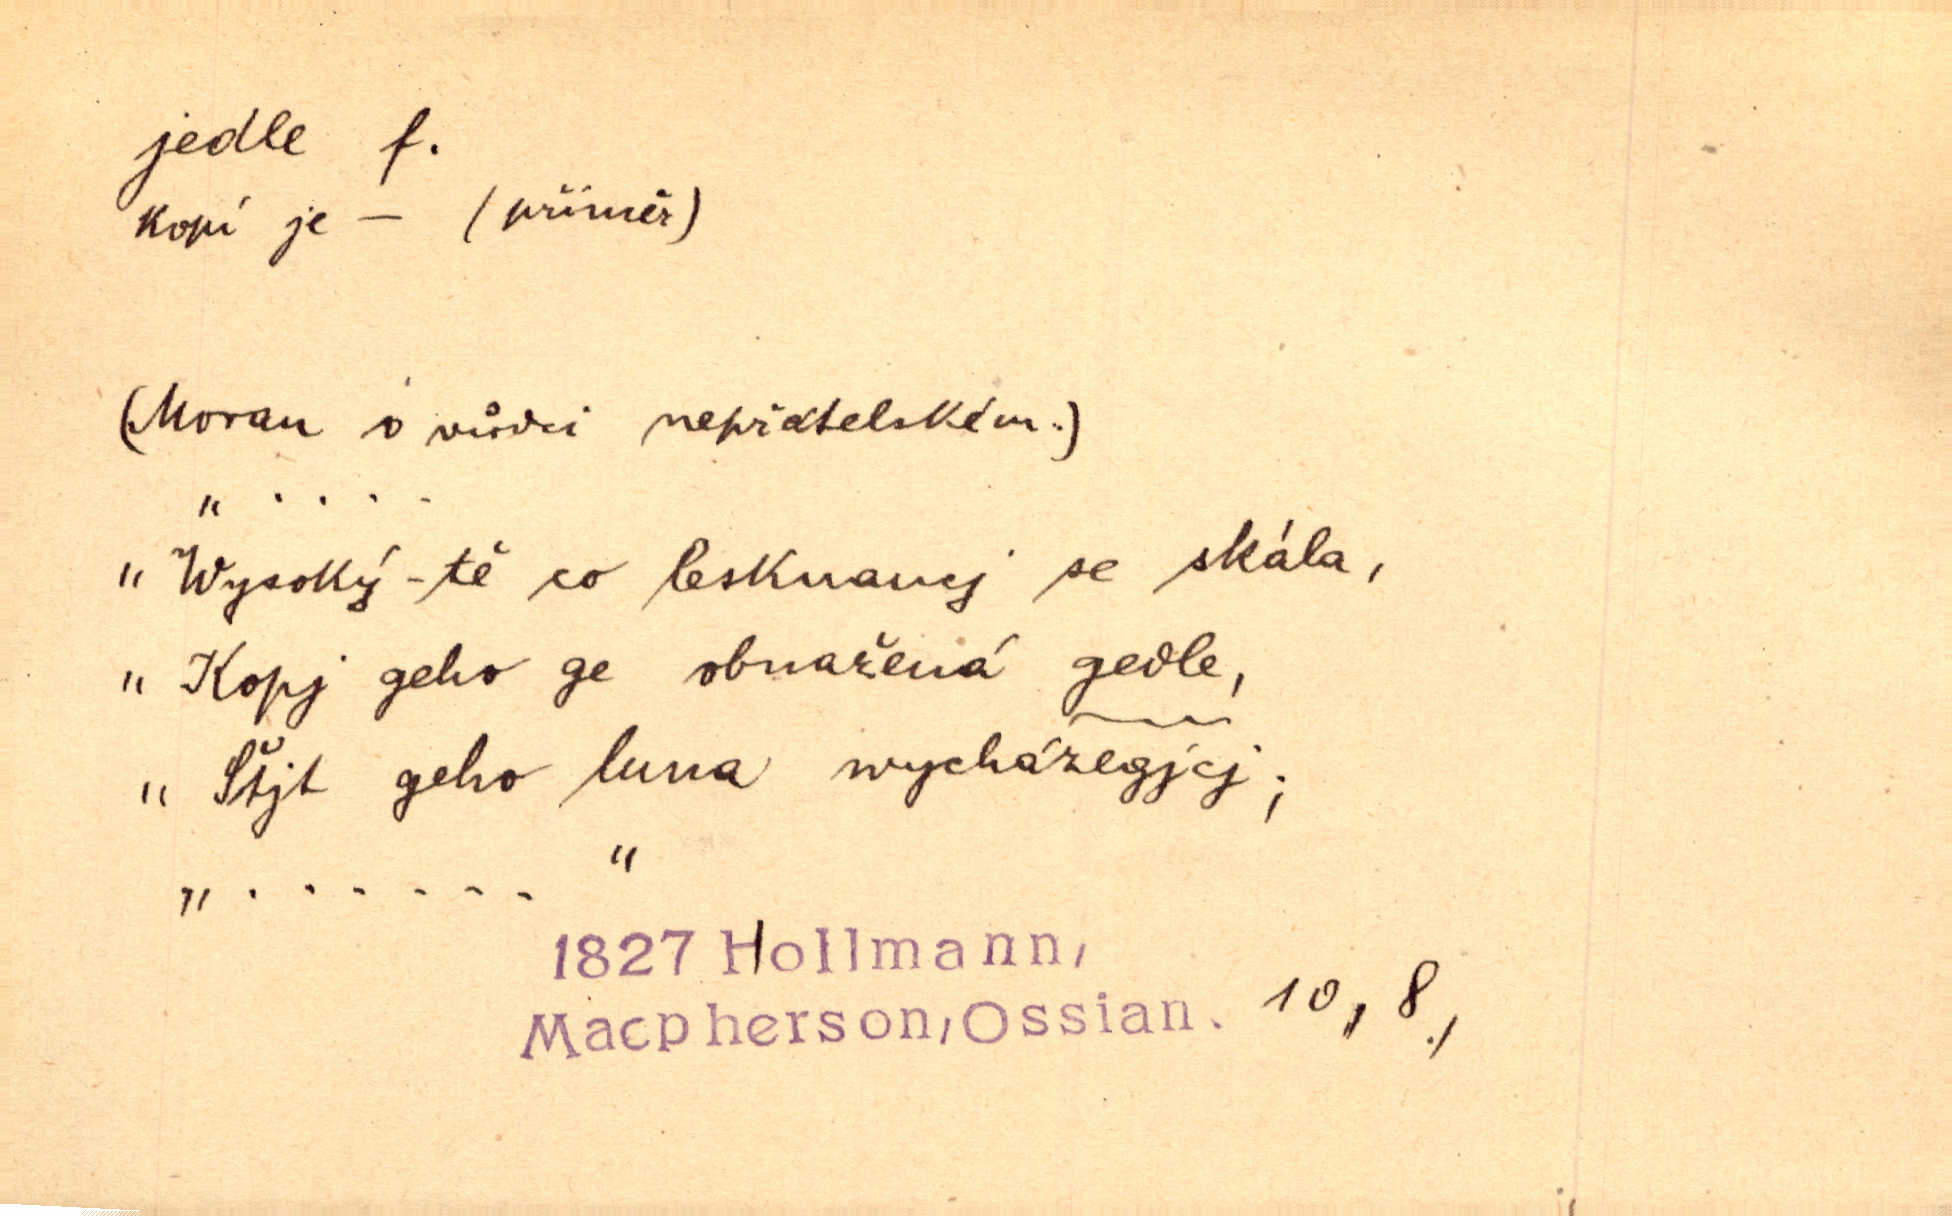 jedle f.
kopí je — (příměr)
(Moran o vůdci nepřátelském.)
" . . . .
" Wysoký-tě co lesknaucj se skála,
" Kopj geho ge obnažená gedle,
" Štjt geho luna wycházegjcj;
" . . . . . . "
1827 Hollmann,
Macpherson, Ossian. 10, 8,